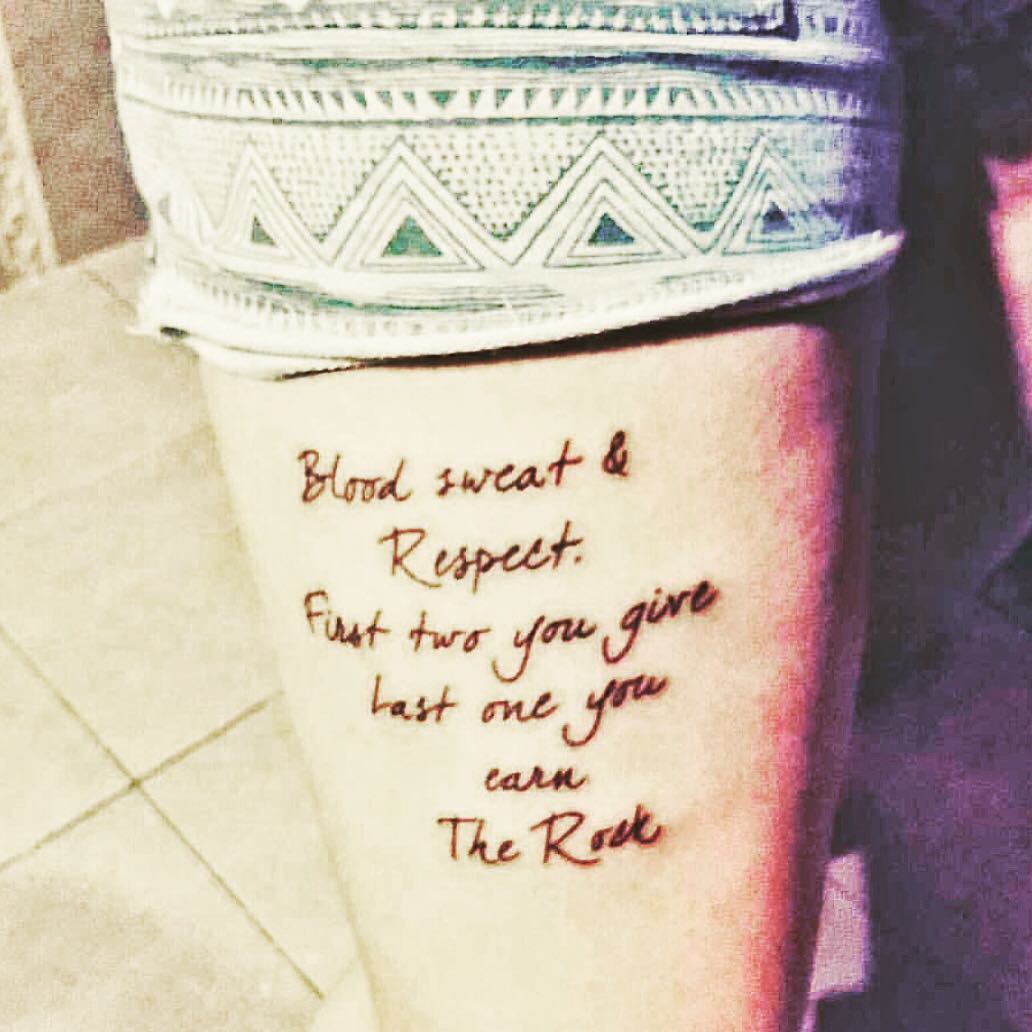 Blood sweat &
Respect.
First two you give
Last one you
earn
The Rock